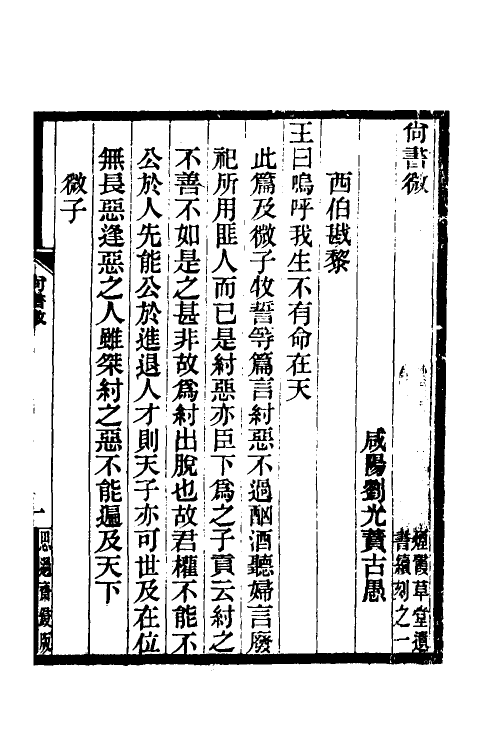 尙書微
煙霞草堂遺
書續刻之一
咸陽劉光蕡古愚
西伯戡黎
王曰嗚呼我生不有命在天
此篇及微子牧誓等篇言紂惡不過酗酒聽婦言廢
祀所用匪人而已是紂惡亦臣下爲之子貢云紂之
不善不如是之甚非故爲紂出脫也故君權不能不
公於人先能公於進退人才則天子亦可世及在位
無長惡逢惡之人雖桀紂之惡不能遍及天下
微子
尙書微
一
思過齋鋟版